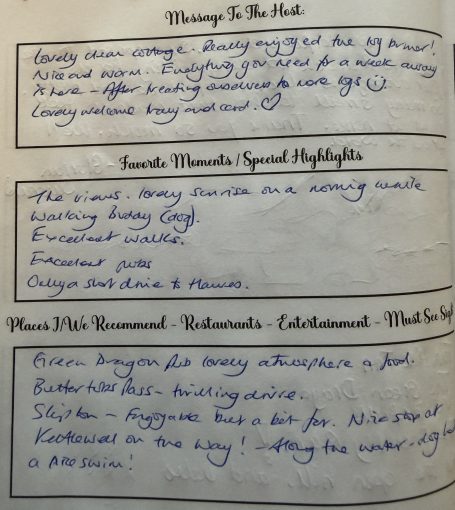 Message To The Host:
Lovely clean cottage. Really enjoyed the log burner!
Nice and warm. Everything you need for a week away
is here - After treating ourselves to more logs :)
Lovely welcome tray and card. ♡
Favorite Moments / Special Highlights
The views. Lovely sunrise on a morning while
walking Buday (dog).
Excellent walks.
Excellent pubs
Only a short drive to Hawes.
Places I/We Recommend - Restaurants - Entertainment - Must See Sig
Green Dragon Pub lovely atmosphere & food.
Buttertubs Pass - thrilling drive.
Skipton - Enjoyable but a bit far. Nice stop at
Kettlewell on the way! - Along the water - dog
a nice swim!